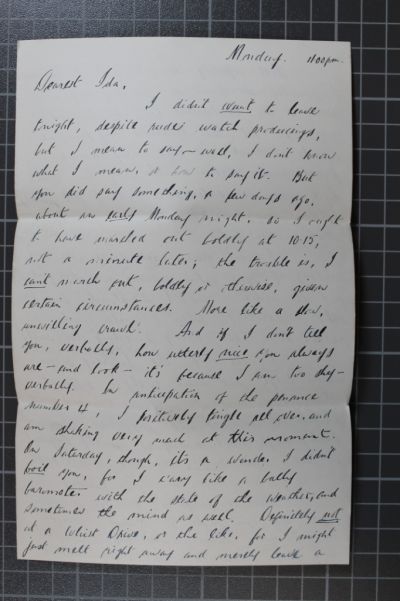 Monday. 11.00 pm.
Dearest Ida,
I didn't want to leave
tonight, despite rude watch producings,
but I mean to say – well, I don't know
what I mean, or how to say it. But
you did say something, a few days ago,
about an early Monday night, so I ought
to have marched out boldly at 10.15,
not a minute later; the trouble is, I
can't march out, boldly or otherwise, given
certain circumstances. More like a slow,
unwilling crawl. And if I don't tell
you, verbally, how utterly nice you always
are – and look – it's because I am too shy –
verbally. In anticipation of the penance
number 4, I positively tingle all over, and
am shaking very much at this moment.
On Saturday, though, it's a wonder I didn't
boil you, for I vary like a bally
barometer with the state of the weather, and
sometimes the mind as well. Definitely not
at a Whist Drive, or the like, for I might
just melt right away and merely leave a